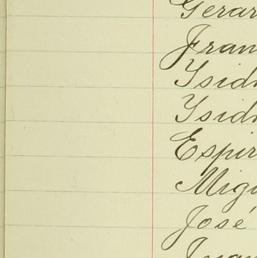 Gerar
Fran
Ysid
Ysid
Espir
Migu
José
Juan